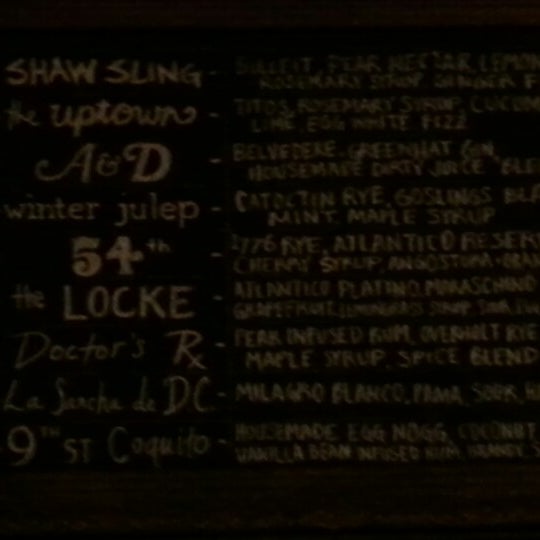 SHAW SLING - BULLEIT, PEAR NECTAR LEMON
ROSEMARY SYRUP GINGER F
the uptown - TITOS, ROSEMARY SYRUP, CUCUM
LIME, EGG WHITE FIZZ
A&D - BELVEDERE, GREENHAT GIN
HOUSEMADE DIRTY JUICE BLE
winter julep - CATOCTIN RYE, GOSLINGS BLA
MINT, MAPLE SYRUP
54th - 1776 RYE, ATLANTICO RESER
CHERRY SYRUP, ANGOSTURA
the LOCKE - ATLANTICO PLATINO, MARASCHINO
GRAPEFRUIT, LEMONGRASS SYRUP
Doctor's Rx - PEAR INFUSED RUM, OVERHOLT RYE
MAPLE SYRUP, SPICE BLEND
La Sancha de DC - MILAGRO BLANCO, PAMA, SOUR
9TH ST Coquito - HOUSEMADE EGG NOGG, COCONUT
VANILLA BEAN INFUSED RUM, BRANDY